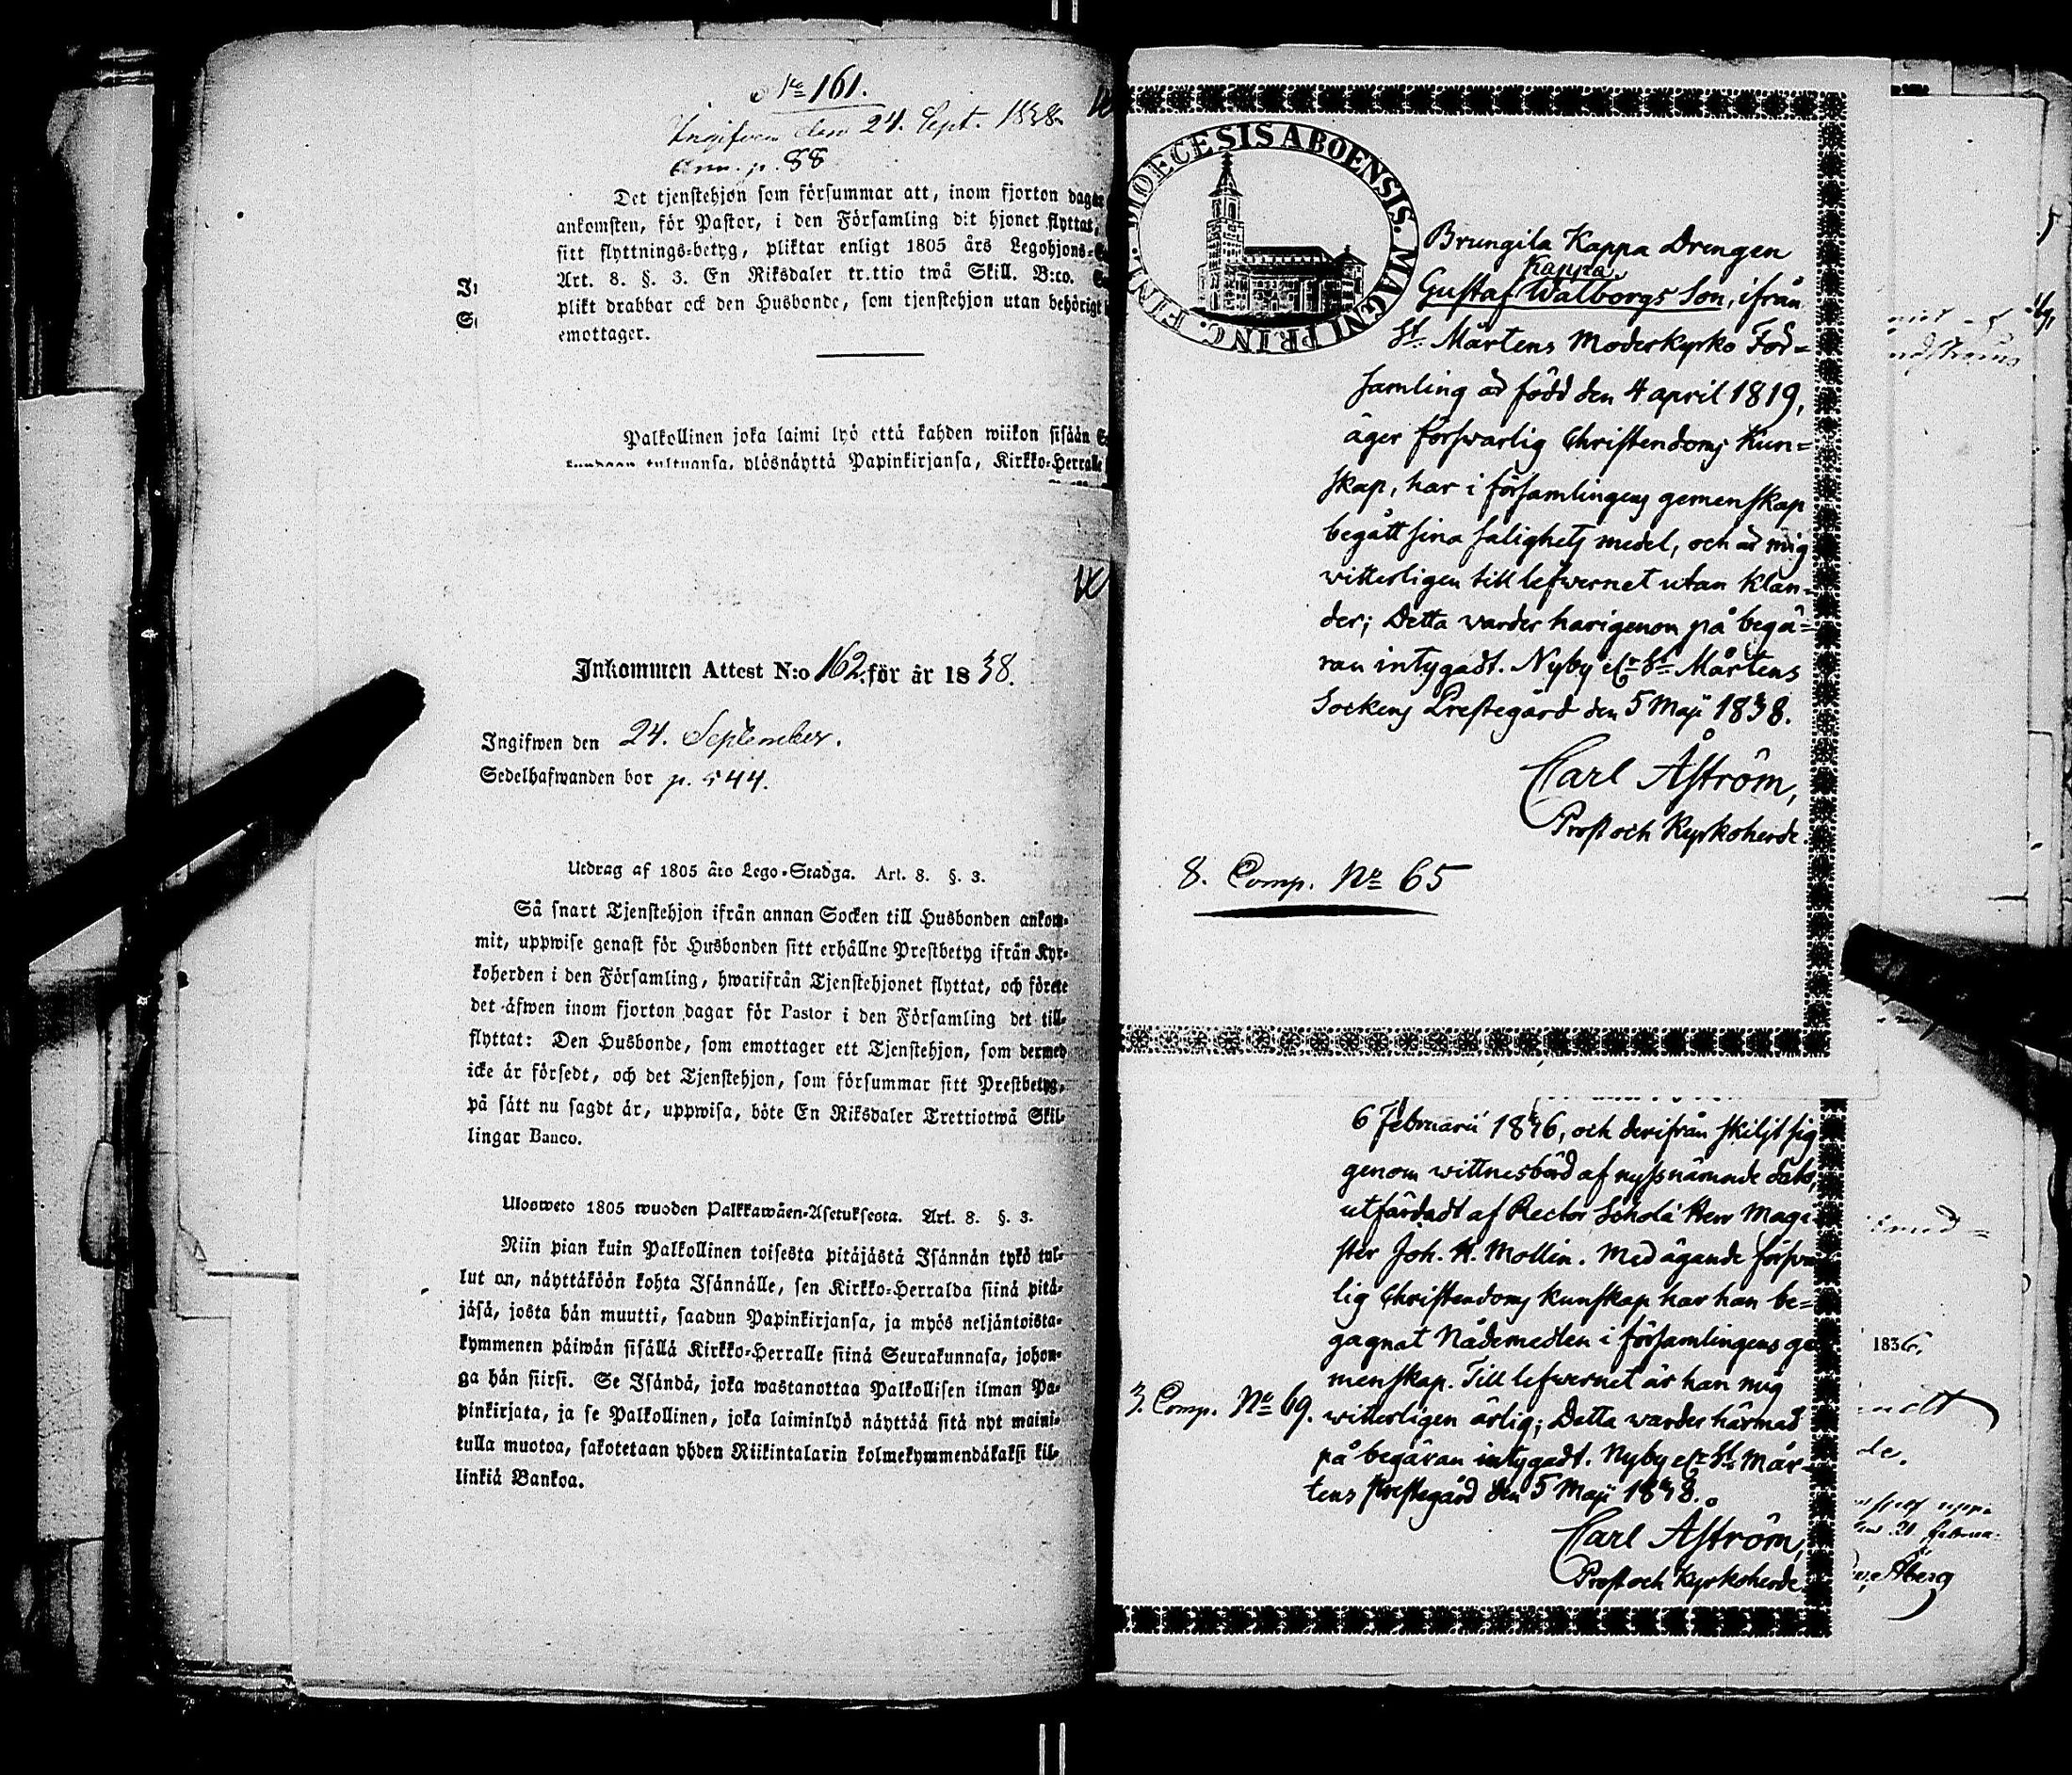 No 161.
Ingifven den 24. Sept. 1838.
Ann. p. 88
Det tjenstehjon som försummar att, inom fjorton dagar
ankomsten, för Pastor, i den Församling dit hjonet flyttat,
sitt flyttnings-betyg, pliktar enligt 1805 års Legohjons-
Art. 8. §. 3. En Riksdaler tr.ttio twå Skill. B:co.
plikt drabbar ock den Husbonde, som tjenstehjon utan behörigt
emottager.
Palkollinen joka laimi lyö että kahden wiikon sisään
tultuansa, ylösnäyttä Papinkirjansa, Kirkko-Herralle
Inkommen Attest N:o 162. för år 1838.
Ingifwen den 24. September.
Sedelhafwanden bor p. 544.
Utdrag af 1805 års Lego-Stadga. Art. 8. §. 3.
Så snart Tjenstehjon ifrån annan Socken till Husbonden ankom-
mit, uppwise genast för Husbonden sitt erhållne Prestbetyg ifrån Kyr-
koherden i den Församling, hwarifrån Tjenstehjonet flyttat, och förete
det äfwen inom fjorton dagar för Pastor i den Församling det till-
flyttat: Den Husbonde, som emottager ett Tjenstehjon, som dermed
icke är försedt, och det Tjenstehjon, som försummar sitt Prestbetyg,
på sätt nu sagdt är, uppwisa, böte En Riksdaler Trettiotwå Skil-
lingar Banco.
Ulosweto 1805 wuoden Palkkawäen-Asetuksesta. Art. 8. §. 3.
Niin pian kuin Palkollinen toisesta pitäjästä Isännän tykö tul-
lut on, näyttäköön kohta Isännälle, sen Kirkko-Herralda siinä pitä-
jäsä, josta hän muutti, saadun Papinkirjansa, ja myös neljäntoista-
kymmenen päiwän sisällä Kirkko-Herralle siinä Seurakunnasa, johon-
ga hän siirsi. Se Isändä, joka wastanottaa Palkollisen ilman Pa-
pinkirjata, ja se Palkollinen, joka laiminlyö näyttää sitä nyt maini-
tulla muotoa, sakotetaan yhden Riikintalarin kolmekymmendäkaksi kil-
linkiä Bankoa.
DIOECESIS ABOENSIS. MAGNI PRINC. FINL.
Brungila Kappa Drengen
Kappa.
Gustaf Walborgs Son, ifrån
St. Mårtens Moderkyrko För-
samling är född den 4 april 1819,
äger förswarlig Christendoms Kun-
skap, har i församlingens gemenskap
begått sina salighets medel, och är mig
witterligen till lefwernet utan klan-
der; Detta warder härigenom på begä-
ran intygadt. Nyby elr St Mårtens
Sockens Prestegård den 5 Maji 1838.
Carl Åström,
Prost och Kyrkoherde.
8. Comp. No 65
6 Februarii 1836, och derifrån skiljt sig
genom wittnesbörd af nyssnämnde dato,
utfärdadt af Rector Scholæ Herr Magi-
ster Joh. H. Mollin. Med ägande förswar
lig Christendoms kunskap har han be-
gagnat Nådemedlen i församlingens ge
menskap. Till lefwernet är han mig
3. Comp. No 69. witterligen ärlig; Detta warder härmed
på begäran intygadt. Nyby elr St Mår-
tens Prestegård den 5 Maji 1838.
Carl Åström,
Prost och Kyrkoherde
1836.
de.
Åberg